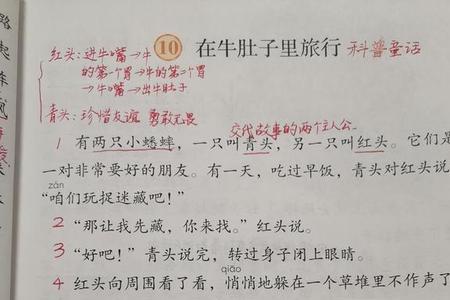 红头：进牛嘴→牛
的第一个胃→牛的第二个胃
→牛嘴→出牛肚子
10 在牛肚子里旅行 科普童话
青头：珍惜友谊 勇敢无畏
交代故事的两个主人公。
1 有两只小蟋蟀，一只叫青头，另一只叫红头。它们是
一对非常要好的朋友。有一天，吃过早饭，青头对红头说
zán
“咱们玩捉迷藏吧！”
2 “那让我先藏，你来找。”红头说。
3 “好吧！”青头说完，转过身子闭上眼睛。
qiāo
4 红头向周围看了看，悄悄地躲在一个草堆里不作声了
路
起
阵